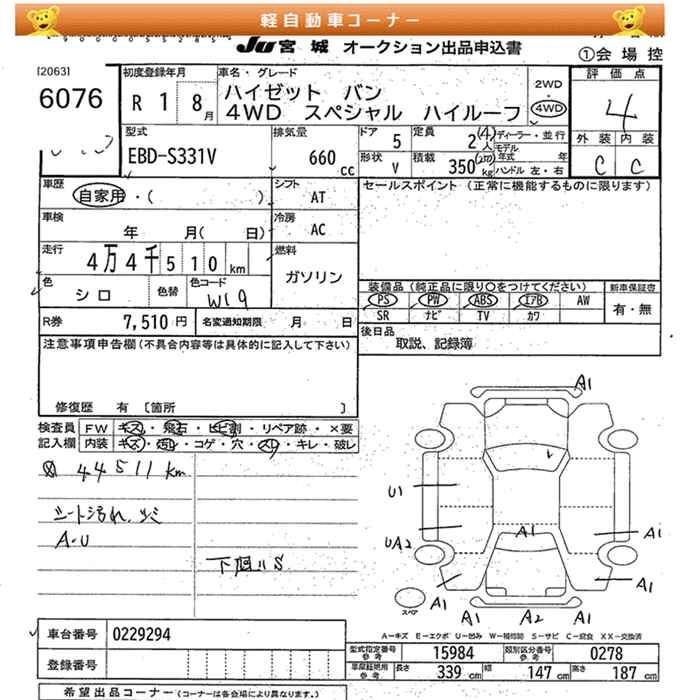 軽自動車コーナー
JU 宮城 オークション出品申込書
①会場控
[2063] 初度登録年月 車名・グレード 評価点
6076 R 1 8月 ハイゼット バン 2WD 4
4WD スペシャル ハイルーフ 4WD
型式 排気量 ドア 5 定員 2(4)人 ディーラー・並行 外装 内装
EBD-S331V 660cc 形状 V 積載 350 kg モデル年式 年 C C
ハンドル 左・右
車歴 シフト セールスポイント (正常に機能するものに限ります)
自家用・( ) AT
車検 冷房
年 月( 日) AC
走行 燃料
4万4千510km ガソリン
色 色替 色コード 装備品 (純正品に限り○をつけてください) 新車保証書
シロ W19 PS PW ABS エアB AW 有・無
SR ナビ TV カワ
R券 7,510円 名変通知期限 月 日 後日品
取説、記録簿
注意事項申告欄(不具合内容等は具体的に記入して下さい)
修復歴 有 〔箇所 〕
検査員 FW キズ・飛石・ヒビ割・リペア跡・×要
記入欄 内装 キズ・汚レ・コゲ・穴・スレ・キレ・破レ
44511km
シート汚れ、
A・U
A1
U1
UA2
A1
A1
A1
A1
A1 A2 A1
スペア
A-キズ E-エクボ U-凹み W-補修跡 S-サビ C-腐食 XX-交換済
車台番号 0229294
型式指定番号 参考 15984 類別区分番号 参考 0278
登録番号
車庫証明用 参考 長さ 339cm 幅 147cm 高さ 187cm
希望出品コーナー(コーナーは各会場により異なります。)